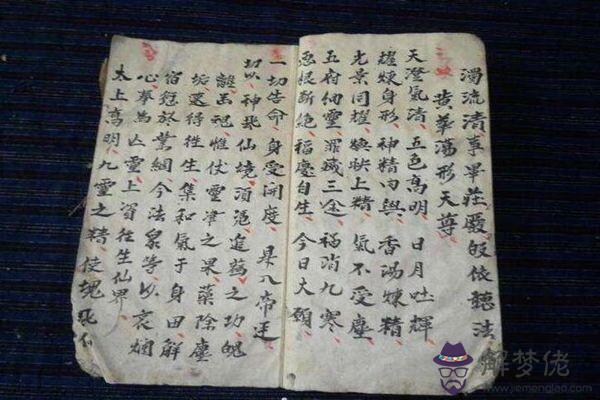 濁流清享畢莊嚴皈依聽法
黄華蕩形天尊
天澄氣清 五色高明 日月吐輝
煉身形 神精內與 香湯煉精
光景同耀 煥映上精 氣不受塵
五府納靈 罪滅三途 禍消九寒
惡根斷絕 福慶自生 今日大願
一切告命 身受開度 昇入帝廷
切以 神飛仙境 須憑進之功 魄
離 惟仗靈津之果 葉除塵
垢 遂得往生 集和氣于身田 解
宿愆於業網 今法眾等以哀
心 奉為亡靈 上資往生仙界
太上高明 九靈之精 使魂飛
解梦佬
www.jiemenglao.com